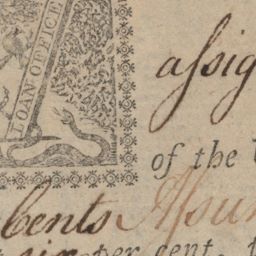 LOAN OFFICE
aſsig
of the
bents Aſsum
six per cent. t